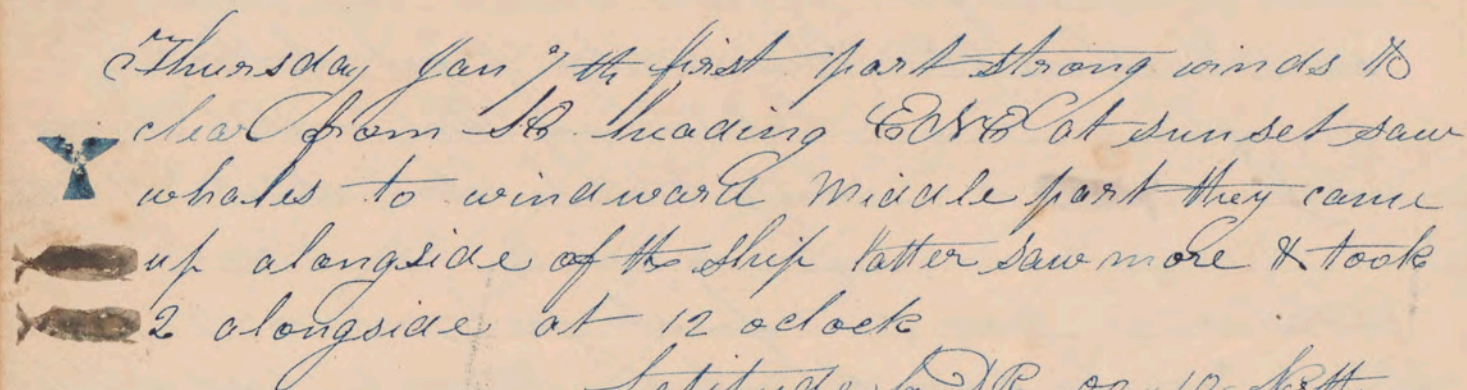 Thursday Jan 7th first part strong winds &
clear from SE heading ENE at sunset saw
whales to windward Middle part they came
up alongside of the ship latter saw more & took
2 alongside at 12 oclock
Latitude by DR